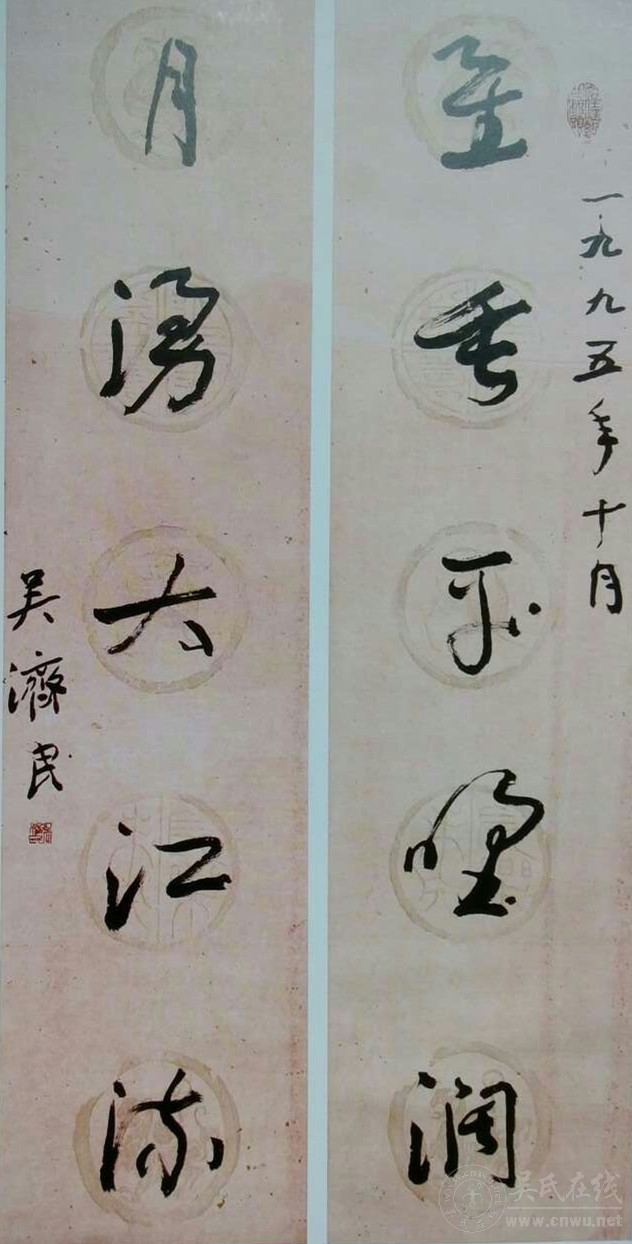 一九九五年十月
星垂平野阔
月涌大江流
吴濟民
吴氏在线
www.cnwu.net